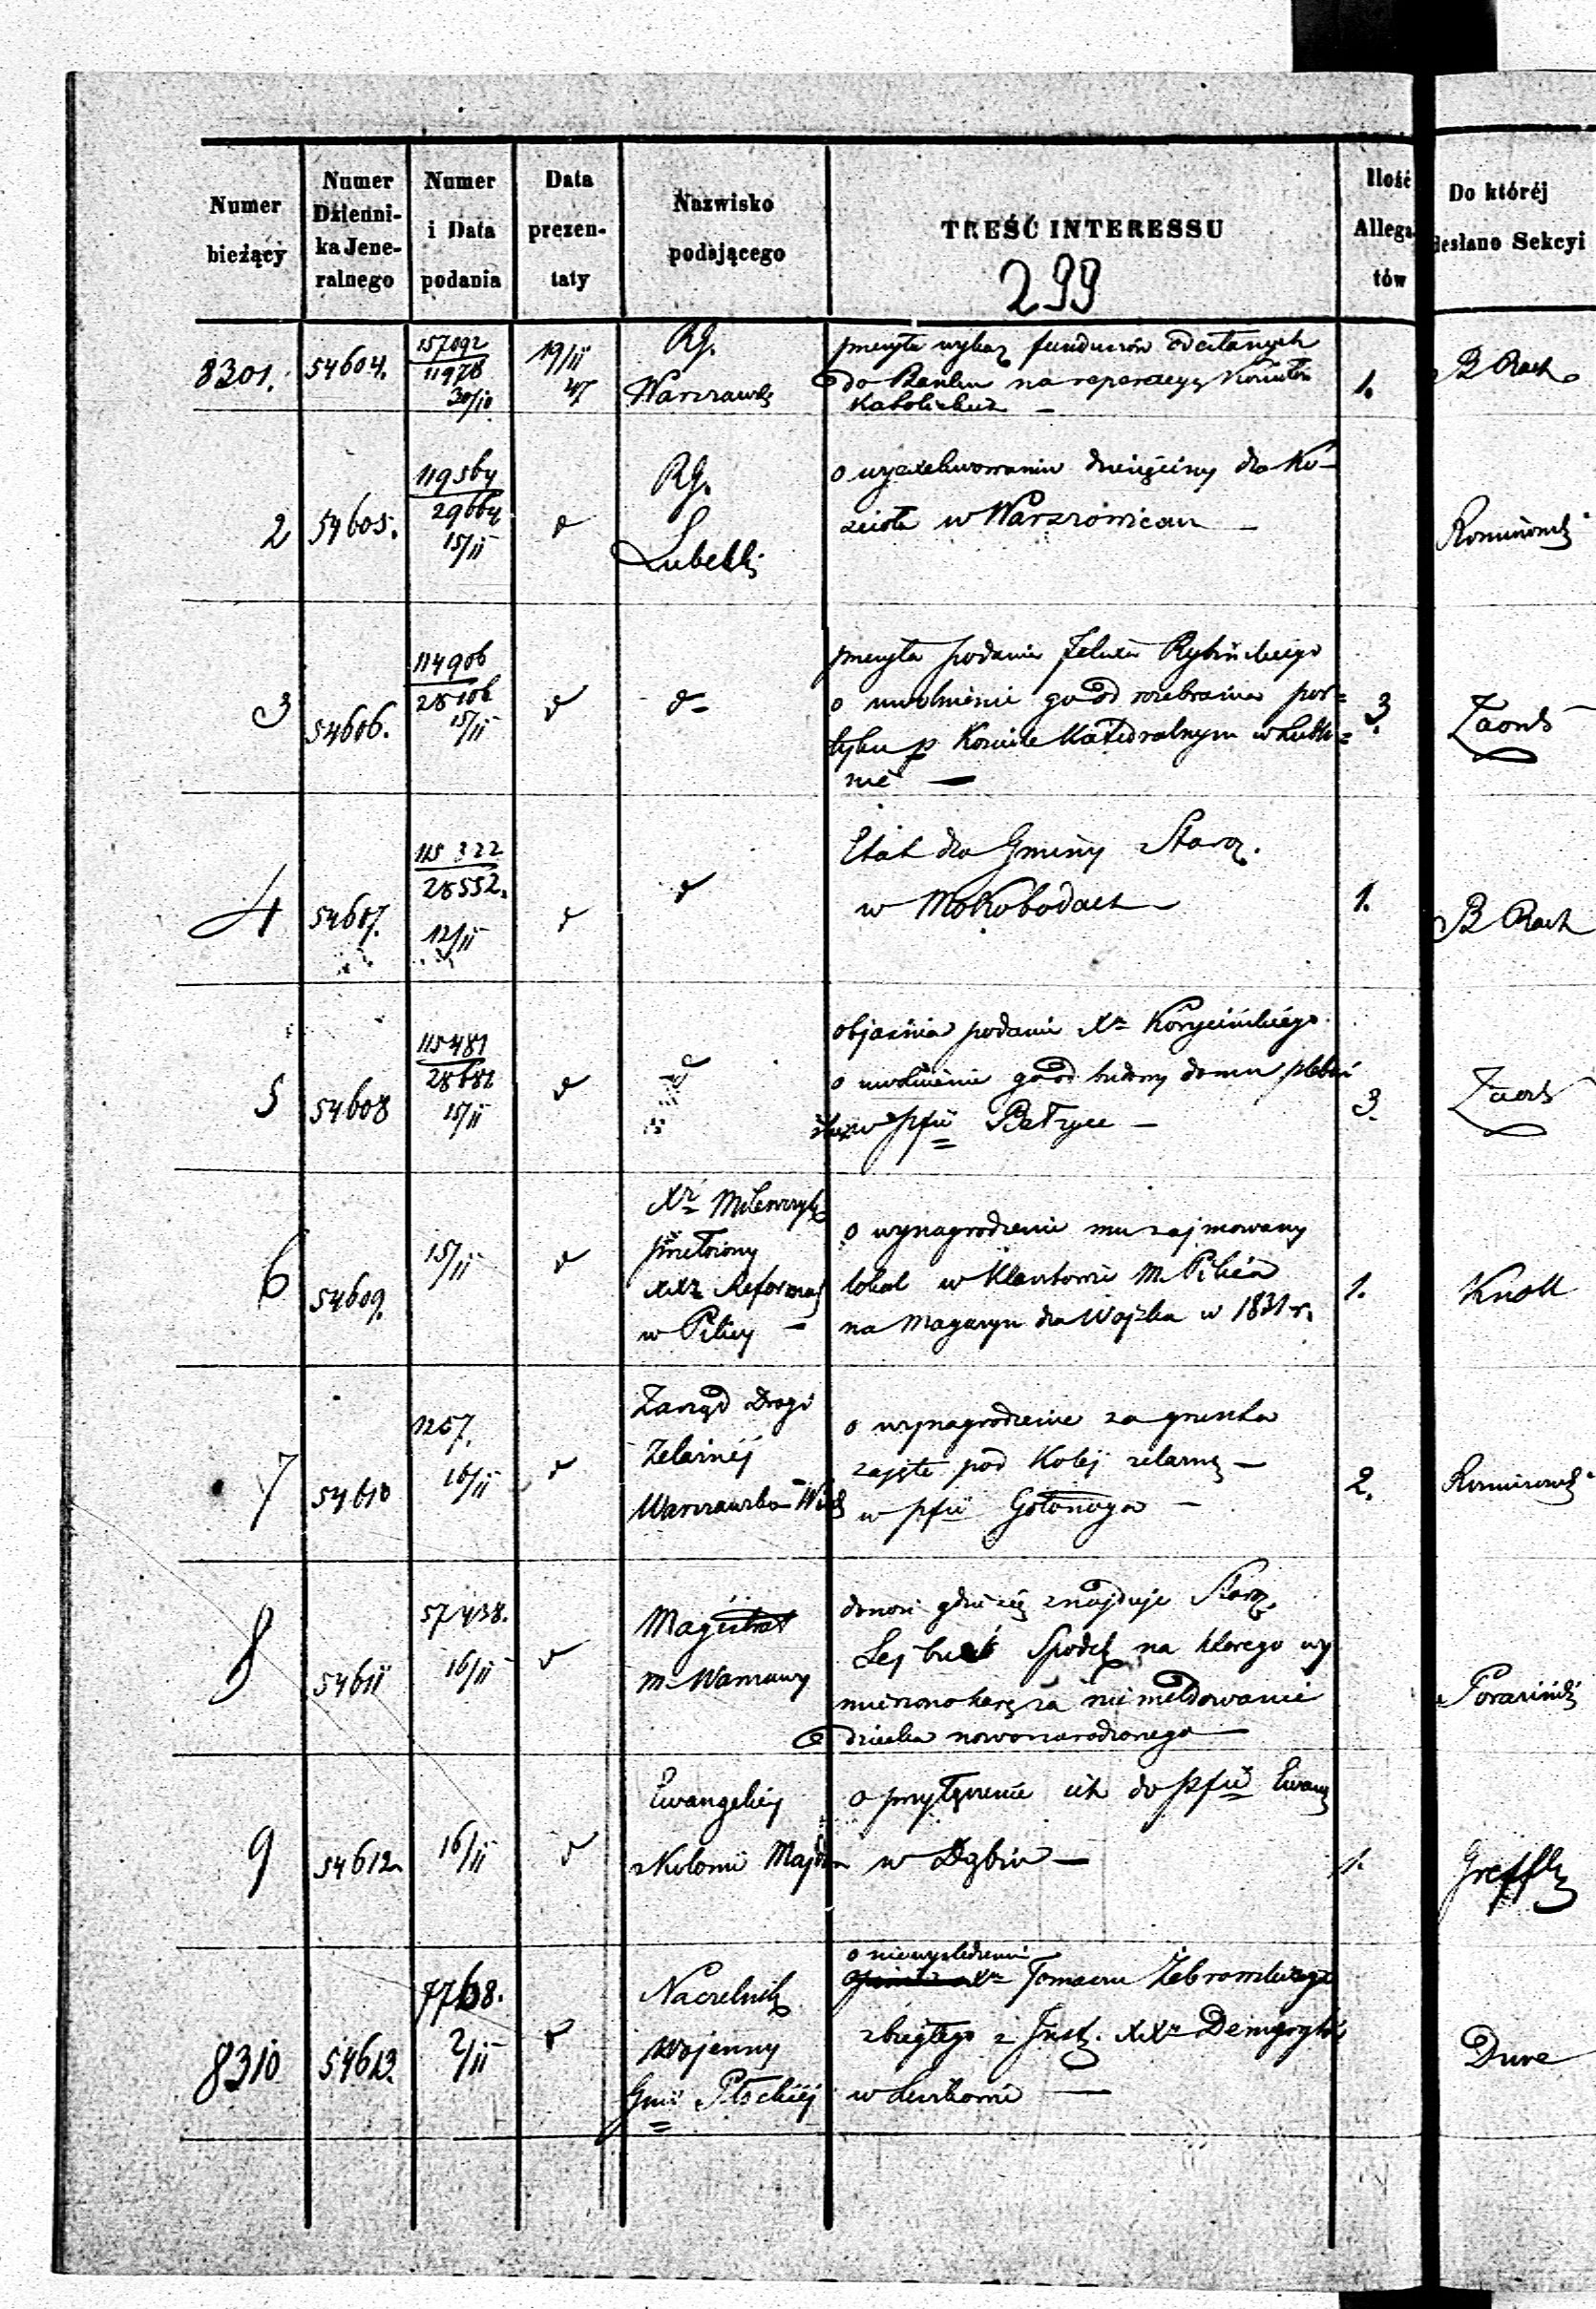 Numer bieżący
Numer Dzienni- ka Jene- ralnego
Numer i Data podania
Data prezen- taty
Nazwisko podającego
TREŚĆ INTERESSU
299
Ilość Allega- tów
Do któréj Sekcyi
8301. 54604. 157092 11978 30/10 19/11 47 Rg. Warszawsk
przesyła wykaz funduszów odesłanych
do Banku na reperacyą Kościołów
Katolickich —
1. B Rach
2 54605. 119564 29664 15/11 d Rg. Lubelski
o wyexekwowanie dziesięciny dla Ko-
ścioła w Warszowicach —
3 54606. 114906 28106 15/11 d d-
przesyła podanie Felixa Rybińskiego
o uwolnienie go od rozebrania por=
tyku p Kościele Katedralnym w Lubli=
nie —
3.
4 54607. 115322 28552. 12/11 d d
Etat dla Gminy Staroz.
w Mokobodach —
1. B Rach
5 54608 115481 28682 15/11 d d
objaśnia podanie Xa Korycińskiego
o uwolnienie go od budowy domu pleba
w pfii —
3.
6 54609. 15/11 d
Xz
przełożony
XXz Reformat
w Pilicy —
o wynagrodzenie mu zajmowany
lokal w Klasztorze M. Pilica
na Magazyn dla Wojska w 1831 r.
1. Knoll
7 54610 1257. 16/11 d
Zarząd Drogi
Żelaznéj
Warszawsko-Wied
o wynagrodzenie za grunta
zajęte pod Koléj żelazną —
w pfii Gołonoga —
2.
8 54611 57438. 16/11 d
Magistrat
m. Warszawy
donosi gdzie się znajduje Staroz.
Lejbuś na którego wy
mierzono karę za niemeldowanie
dziecka nowonarodzonego —
9 54612. 16/11 d
Ewangelicy
z Kolonii Majdan
o przyłączenie ich do pfii Ewang
w Dąbiu —
1.
8310 54613. 7768. 2/11 d
Naczelnik
Wojenny
Gnii Płockiéj
o niewyśledzeniu
Xa Tomasza Żebrowskiego
zbiegłego z Inst. XXz Demerytów
w —